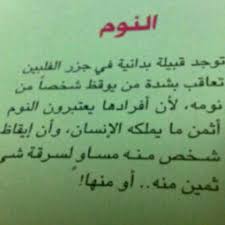 النوم
توجد قبيلة بدائية في جزر الفلبين
تعاقب بشدة من يوقظ شخصاً من
نومه، لأن أفرادها يعتبرون النوم
أثمن ما يملكه الإنسان، وأن إيقاظ
شخص منه مساوٍ لسرقة شيء
ثمين منه.. أو منها!